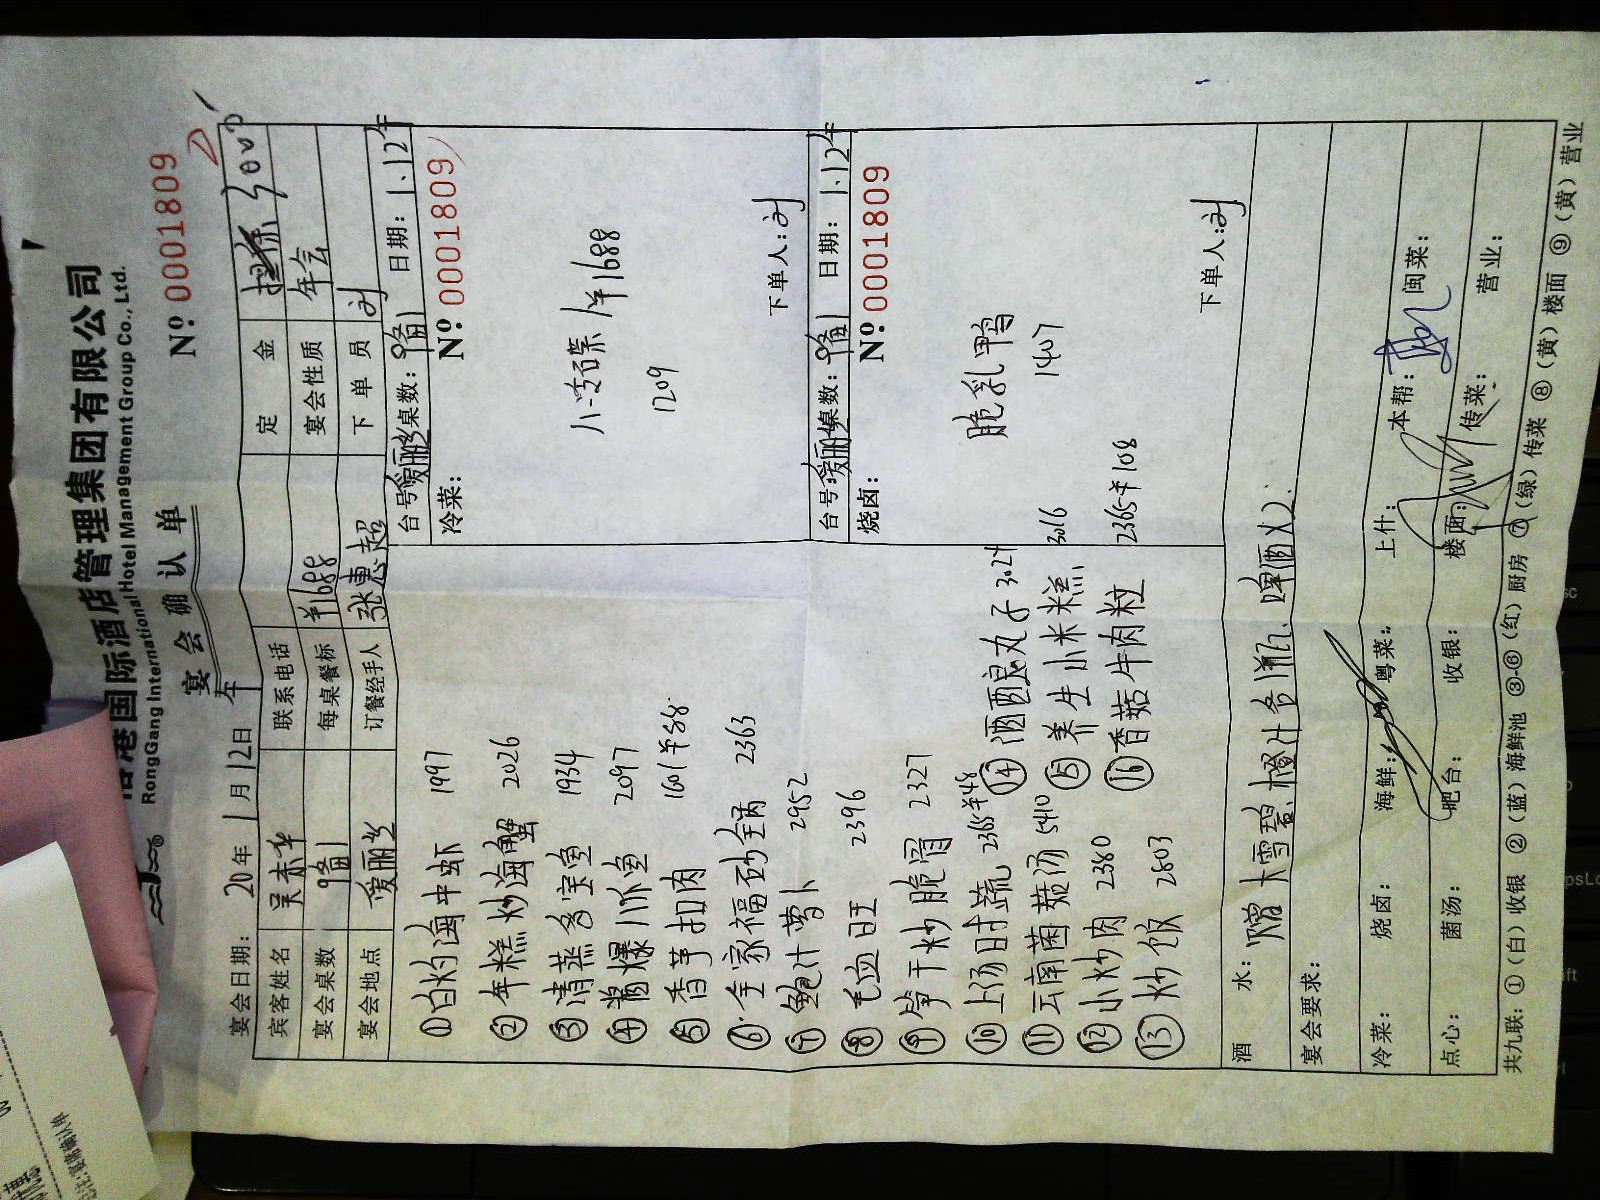 港国际酒店管理集团有限公司
RongGang International Hotel Management Group Co., Ltd.
宴会确认单
№ 0001809
宴会日期: 20 年 1 月 12 日 午
宾客姓名 联系电话 定金 3000
宴会桌数 9备1 每桌餐标 ¥1688 宴会性质 年会
宴会地点 爱丽丝 订餐经手人 张惠超 下单员 刘
①白灼海中虾 1997
②年糕炒海蟹 2026
③清蒸多宝鱼 1934
④酱爆八爪鱼 2097
⑤香芋扣肉 1601 ¥88
⑥全家福砂锅 2363
⑦鲍汁萝卜 2952
⑧毛血旺 2396
⑨笋干炒脆骨 2327
⑩上汤时蔬 2365 ¥48
⑪云南菌菇汤 5410
⑫小炒肉 2380
⑬炒饭 2803
⑭酒酿丸子 3024
⑮养生小米糕 3016
⑯香菇牛肉粒 2365 ¥108
台号 爱丽丝 桌数: 9备1 日期: 1.12午
冷菜: № 0001809
八小碟 ¥1688
1209
下单人: 刘
台号 爱丽丝 桌数: 9备1 日期: 1.12午
烧卤: № 0001809
脆乳鸭
1407
下单人: 刘
酒水: 赠大雪碧.橙汁各1瓶、啤酒X2.
宴会要求:
冷菜: 烧卤: 海鲜: 粤菜: 上什: 本帮: 闽菜:
点心: 菌汤: 吧台: 收银: 楼面: 传菜: 营业:
共九联: ①(白)收银 ②(蓝)海鲜池 ③-⑥(红)厨房 ⑦(绿)传菜 ⑧(黄)楼面 ⑨(黄)营业